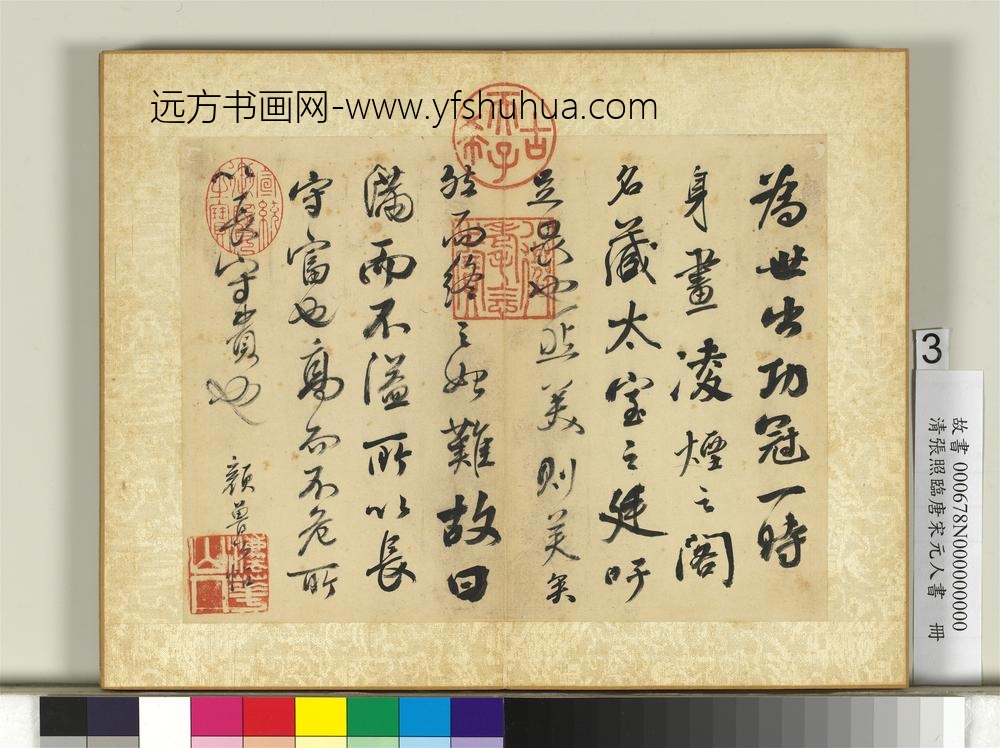 远方书画网-www.yfshuhua.com
為世出功冠一時
身畫凌煙之閣
名藏太室之廷吁
足畏也然美則美矣
然而終之始難故曰
滿而不溢所以長
守富也高而不危所
以長守貴也
顏魯公帖
古希天子
3
故書 000678N000000000
清張照臨唐宋元人書 冊